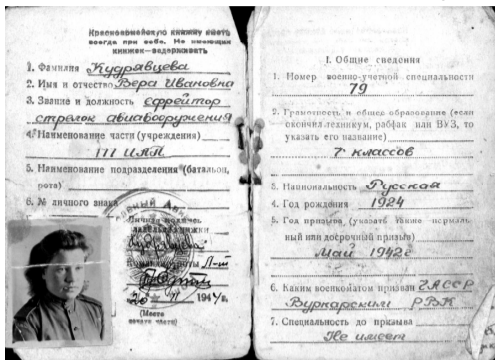 Красноармейскую книжку иметь
всегда при себе. Не имеющих
книжек—задерживать
1. Фамилия Кудрявцева
2. Имя и отчество Вера Ивановна
3. Звание и должность ефрейтор
стрелок авиавооружения
4. Наименование части (учреждения)
III ИАП
5. Наименование подразделения (батальон,
рота)
6. № личного знака
Личная подпись
владельца книжки
Кудрявцева
194
(Место
печати части)
I. Общие сведения
1. Номер военно-учетной специальности
79
2. Грамотность и общее образование (если
окончил техникум, рабфак или ВУЗ, то
указать его название)
7 классов
3. Национальность Русская
4. Год рождения 1924
5. Год призыва (указать также нормаль-
ный или досрочный призыв)
Май 1942г
6. Каким военкоматом призван ЧАССР
Вурнарским РВК
7. Специальность до призыва
Не имеет